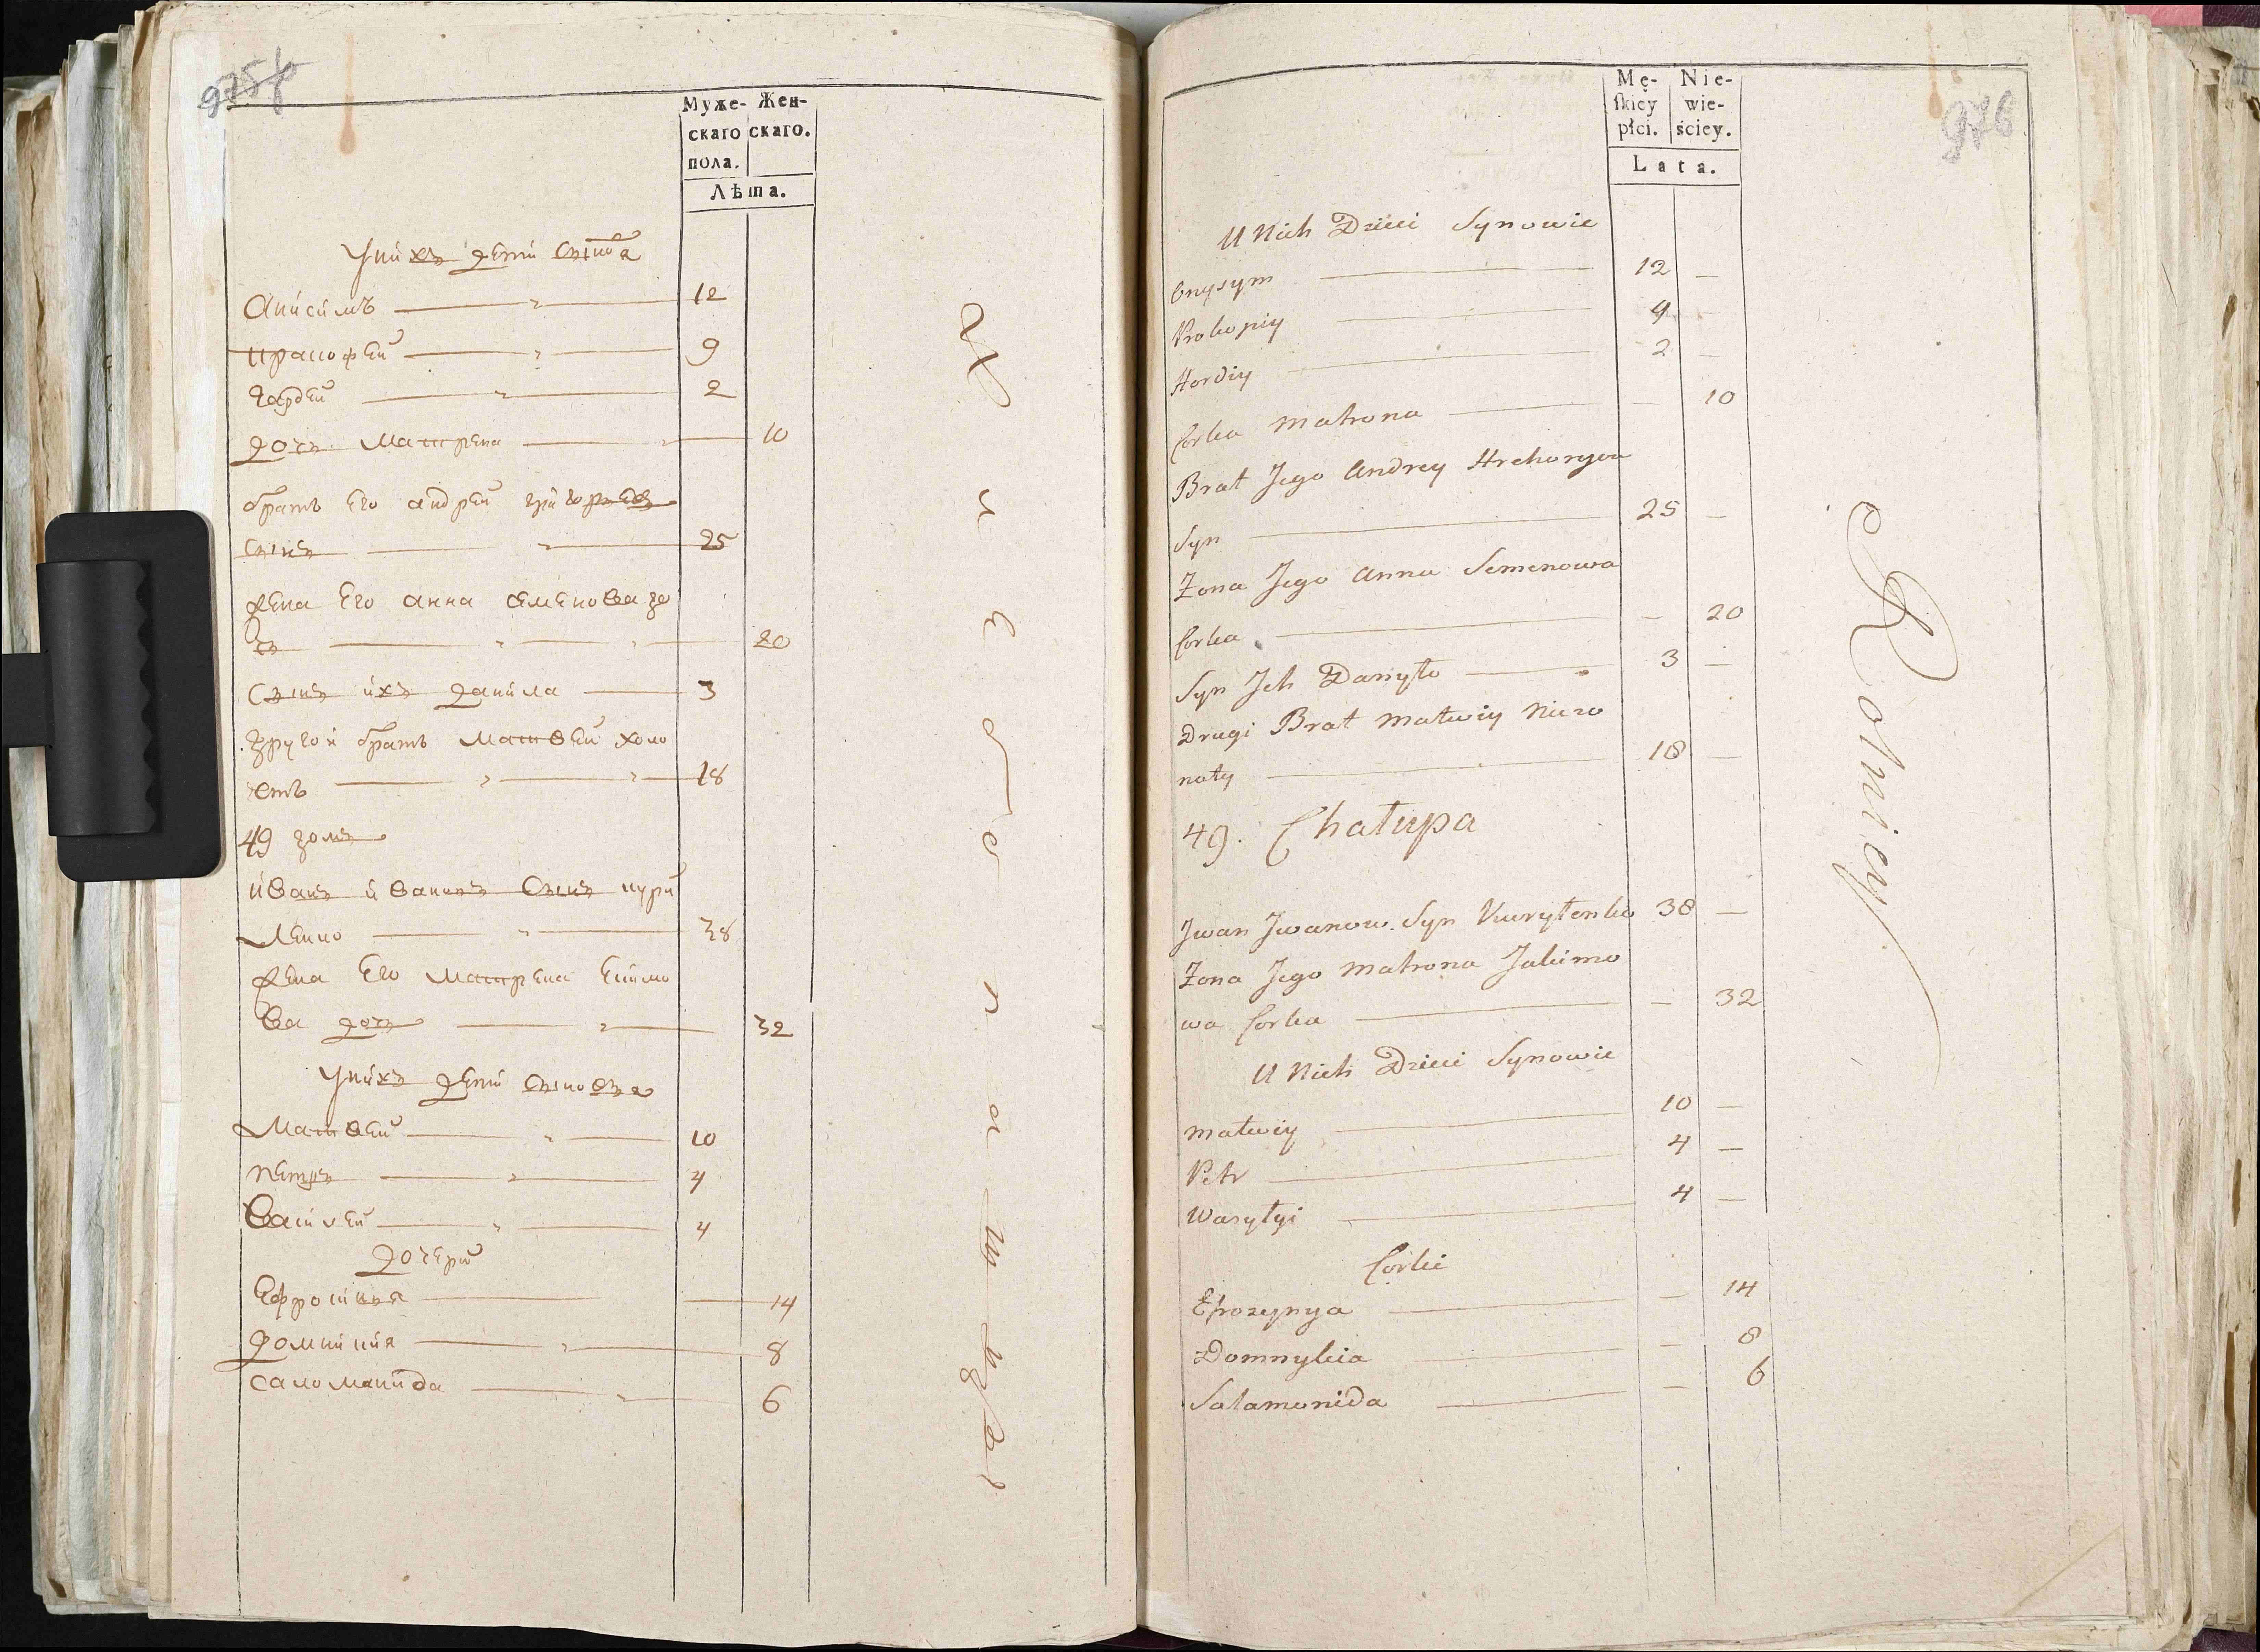 975
Муже- Жен-
скаго скаго.
пола.
Лѣта.
У нихъ дети сынова
Анисимъ 12
прокофей 9
гордей 2
дочь матрена 10
братъ его андрей григорьевъ
сынъ 25
жена его анна семенова до
чь 20
сынъ ихъ данила 3
другой братъ матвей холо
стъ 18
49 домъ
иванъ ивановъ сынъ кури
ленко 38
жена его матрена екимо
ва дочь 32
У нихъ дети сыновья
Матвей 10
петръ 4
василей 4
дочери
Ефросинья 14
домникия 8
саломанида 6
Mę- Nie-
ſkiey wie-
płci. ściey.
Lata.
976
U Nich Dzieci Synowie
Onysym 12 —
Prokopiy 9 —
Hordiy 2 —
Corka Matrona — 10
Brat Jego Andrey Hrehoryow
Syn 25 —
Zona Jego Anna Semenowa
Corka — 20
Syn Jch Danyło 3 —
Drugi Brat Matwiy Nieżo
naty 18 —
49. Chałupa
Jwan Jwanow Syn Kuryłenko 38 —
Zona Jego Matrona Jakimo
wa Corka — 32
U Nich Dzieci Synowie
Matwiy 10 —
Petr 4 —
Wasyłyi 4 —
Corki
Efrozynya — 14
Domnykia — 8
Salamonida — 6
Rolnicy